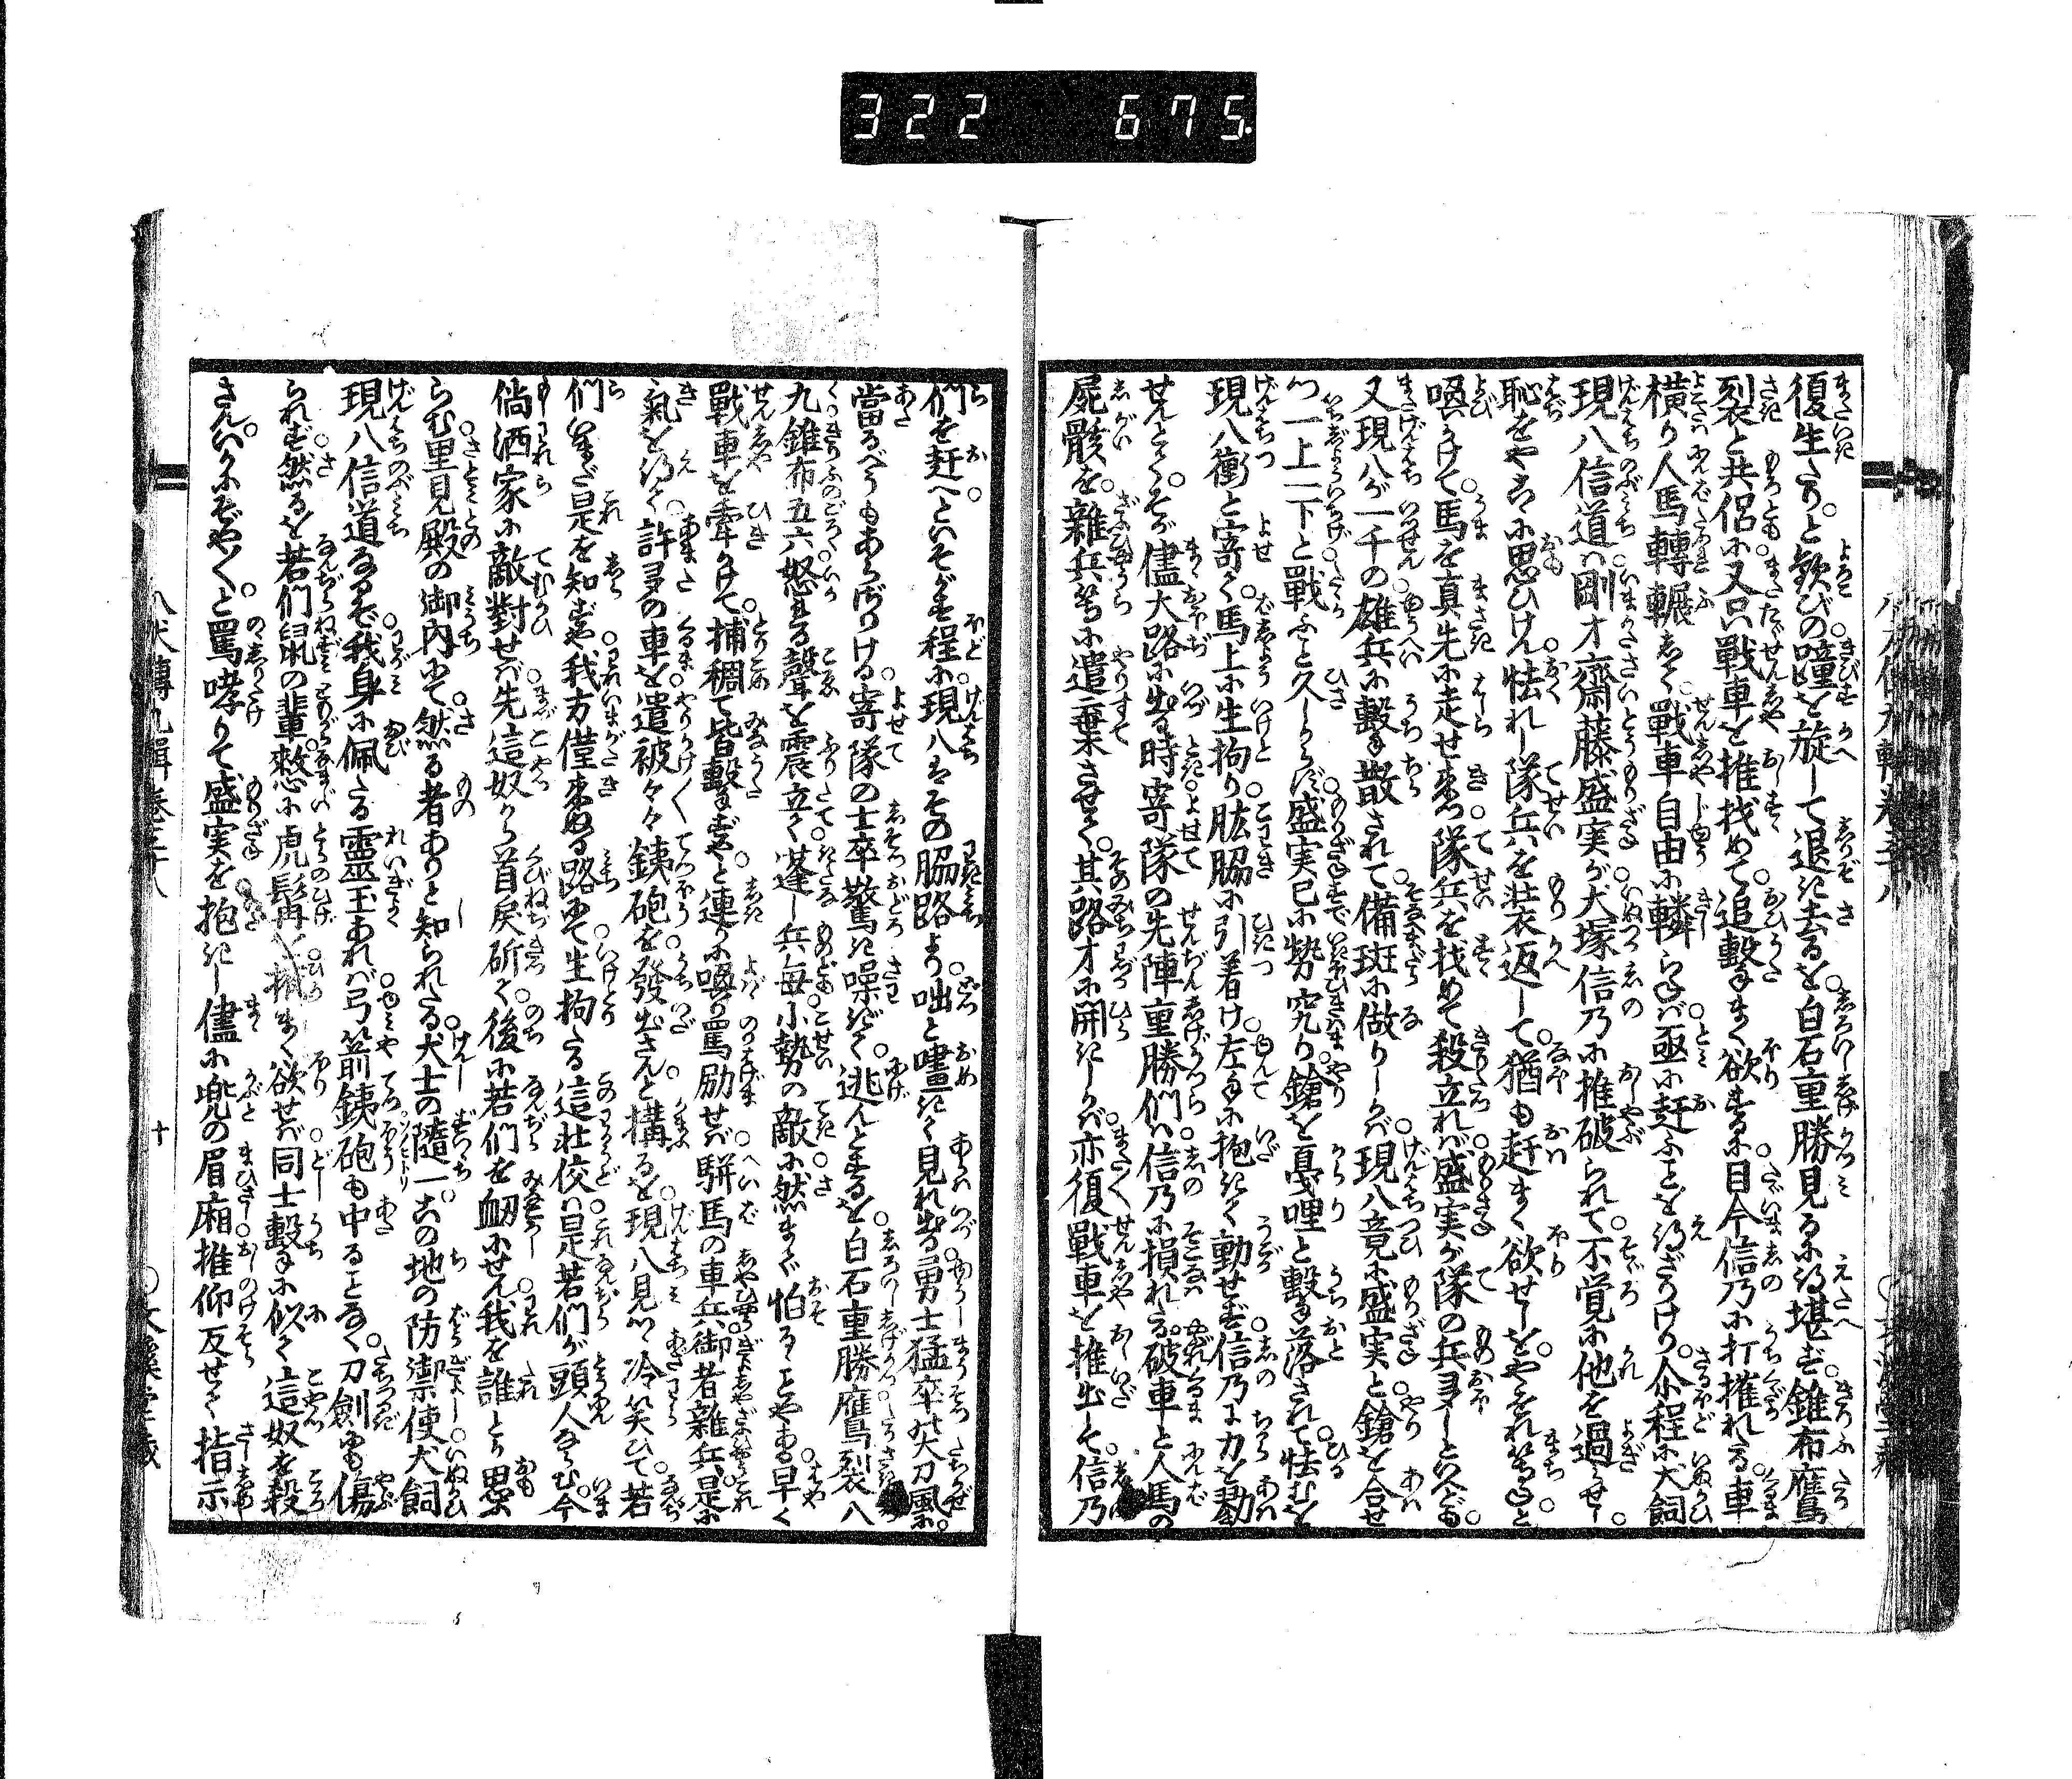 322 675
復生たりと歓びの踵を旋して退き去るを白石重勝見るに得堪ず錐布鷹
裂と共侶に又只戦車を推找めて追撃まく欲する日今信乃に打摧れたる車
横り人馬轉輾して戦車自由に轔らねば亟に赶ふことを得ざりけり尒程に犬飼
現八信道は剛才齋藤盛実が犬塚信乃に推破られて不覚に他を過らせし
恥をやさに思ひけん怯れし隊兵を装返して猶も赶まく欲せしをやをれ等ねと
喚かけて馬を真先に走せ来つ隊兵を找めて殺立れば盛実が隊の兵多しといへども
又現八が一千の雄兵に撃散されて備斑に做りしかば現八竟に盛実と鎗を合せ
つ一上一下と戦ふと久しからず盛実已に勢究り鎗を戞哩と撃落されて怯むを
現八衝と寄て馬上に生拘り肱脇に引着け左手に抱きて動せず信乃に力を勠
せんとてそが儘大路に出る時寄隊の先陣重勝們は信乃に損れたる破車と人馬の
屍骸を雑兵等に遣棄させて其路才に開きしかば亦復戦車を推出して信乃
們を赶へといそがす程に現八はその脇路より咄と嘨きて見れ出る勇士猛卒の大刀風に
當るべうもあらざりける寄隊の士卒驚き噪ぎて逃んとするを白石重勝鷹裂八
九錐布五六怒れる聲を震立て蓬し兵毎小勢の敵に然まで怕るゝことやある早く
戦車を牽かけて捕稠て皆撃ずやと連りに喚り罵励せば駢馬の車兵御者雑兵是に
氣を得て許多の車を遣被々々銕砲を發出さんと構るを現八見つゝ冷笑ひて若
們いまだ是を知ずや我方僅来ぬる路にて生拘たる這壮佼は是若們が頭人ならむ今
倘洒家に敵對せば先這奴から首戻斫て後に若們を衄にせん我を誰とか思ふ
らむ里見殿の御内にて然る者ありと知られたる犬士の隨一この地の防禦使犬飼
現八信道なるぞ我身に佩たる霊玉あれば弓箭銕砲も中ることなく刀劍にも傷
られず然るを若們鼠の輩憗に虎髯を捋まく欲せば同士撃に似て這奴を殺
さんいかにぞや〳〵と罵哮りて盛実を抱きし儘に兜の眉廂推仰反せて指示
八犬傳九輯巻三十八
十
○文溪堂蔵